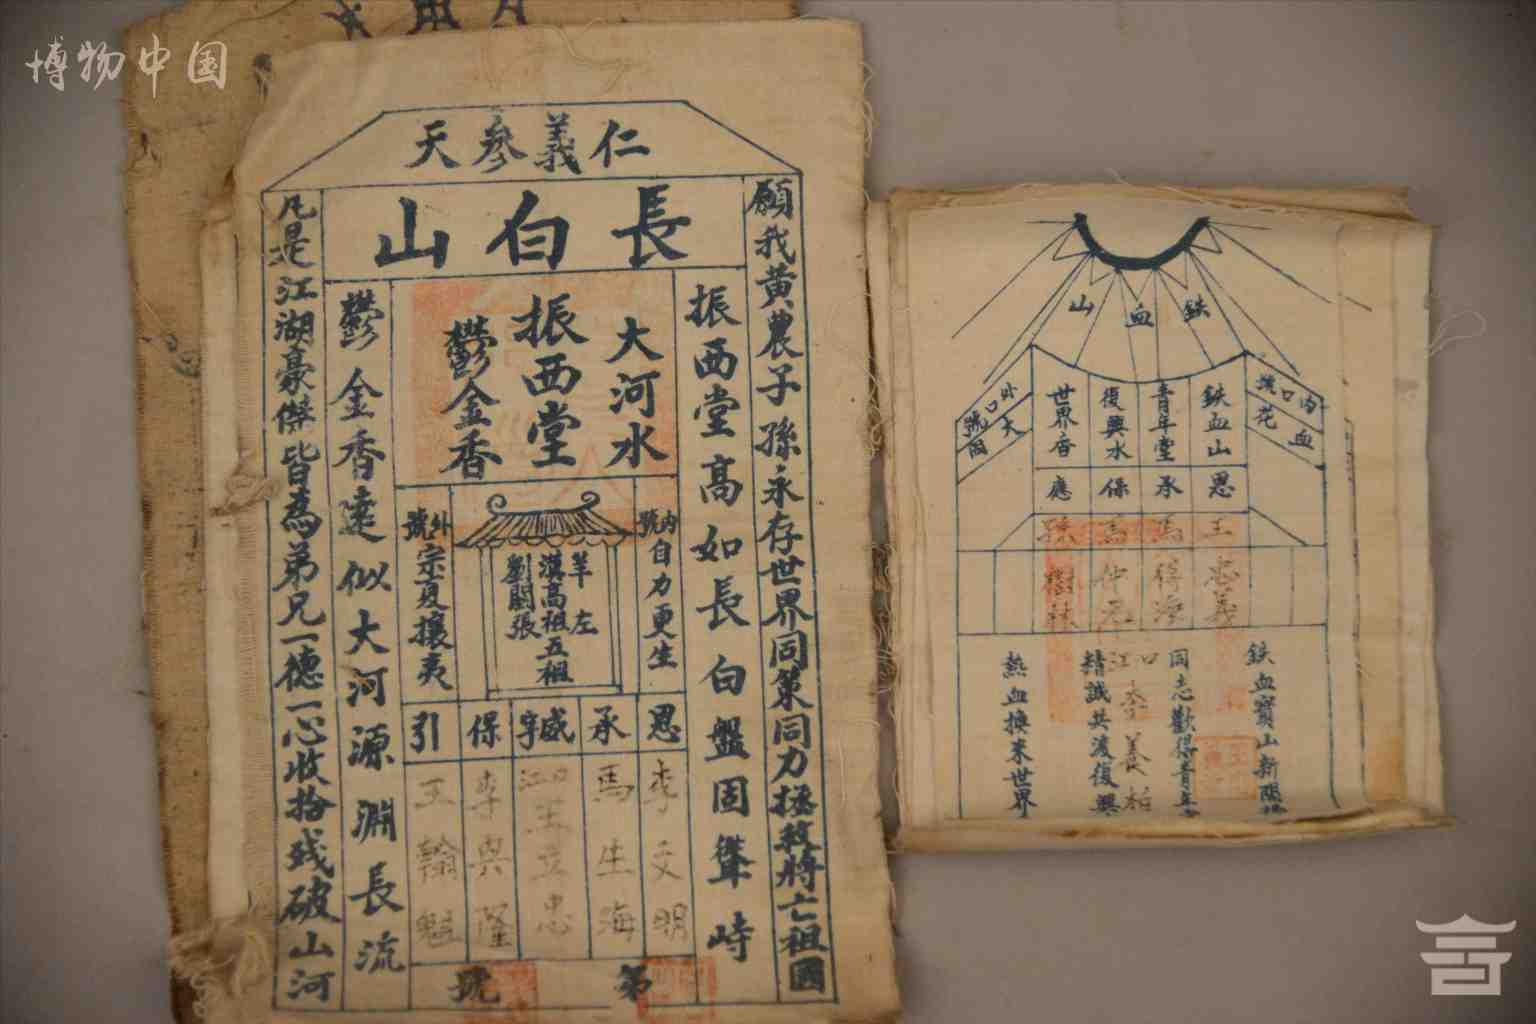 博物中国
仁義參天
長白山
願我黃農子孫永存世界同策同力拯救將亡祖國
振西堂高如長白盤固聳峙
大河水
振西堂
鬱金香
鬱金香遠似大河源淵長流
凡是江湖豪傑皆為弟兄一德一心收拾残破山河
內號
自力更生
羊左
漢高祖五祖
劉關張
外號
宗夏攘夷
恩
承
保
引
李文明
馬生海
江口王立忠
李興隆
王翰魁
第
號
鉄血山
內口號
血花
鉄血山
青年堂
復興水
世界香
外口號
大同
恩
承
保
應
王忠義
馬得海
馬仲元
孫樹林
鉄血寶山新開
同志歡得青年
江口李養栢
精誠共渡復興
熱血換来世界